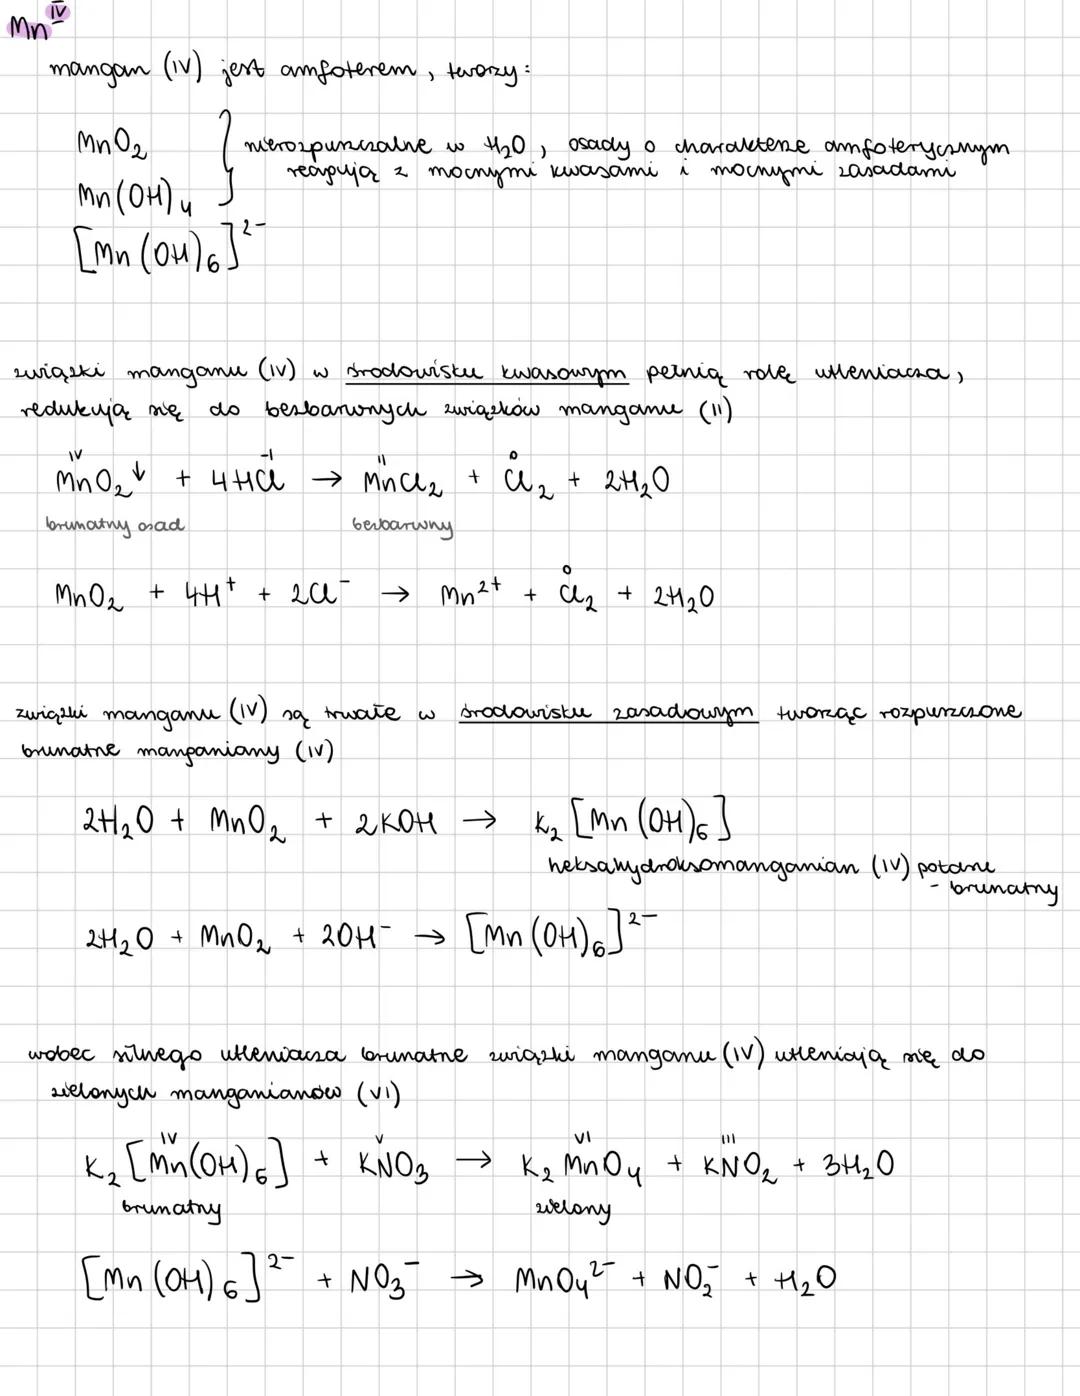 Mn^IV
mangan (IV) jest amfoterem, tworzy:
MnO₂
nierozpuszczalne w H₂O, osady o charakterze amfoterycznym
reagują z mocnymi kwasami i mocnymi zasadami
Mn(OH)₄
[Mn(OH)₆]²⁻
związki manganu (IV) w środowisku kwasowym pełnią rolę utleniacza,
redukują się do bezbarwnych związków manganu (II)
IV -I II 0
MnO₂↓ + 4HCl → MnCl₂ + Cl₂ + 2H₂O
brunatny osad bezbarwny
0
MnO₂ + 4H⁺ + 2Cl⁻ → Mn²⁺ + Cl₂ + 2H₂O
związki manganu (IV) są trwałe w środowisku zasadowym tworząc rozpuszczone
brunatne manganiany (IV)
2H₂O + MnO₂ + 2KOH → K₂[Mn(OH)₆]
heksahydroksomanganian (IV) potasu
- brunatny
2H₂O + MnO₂ + 2OH⁻ → [Mn(OH)₆]²⁻
wobec silnego utleniacza brunatne związki manganu (IV) utleniają się do
zielonych manganianów (VI)
IV V VI III
K₂[Mn(OH)₆] + KNO₃ → K₂MnO₄ + KNO₂ + 3H₂O
brunatny zielony
[Mn(OH)₆]²⁻ + NO₃⁻ → MnO₄²⁻ + NO₂⁻ + H₂O